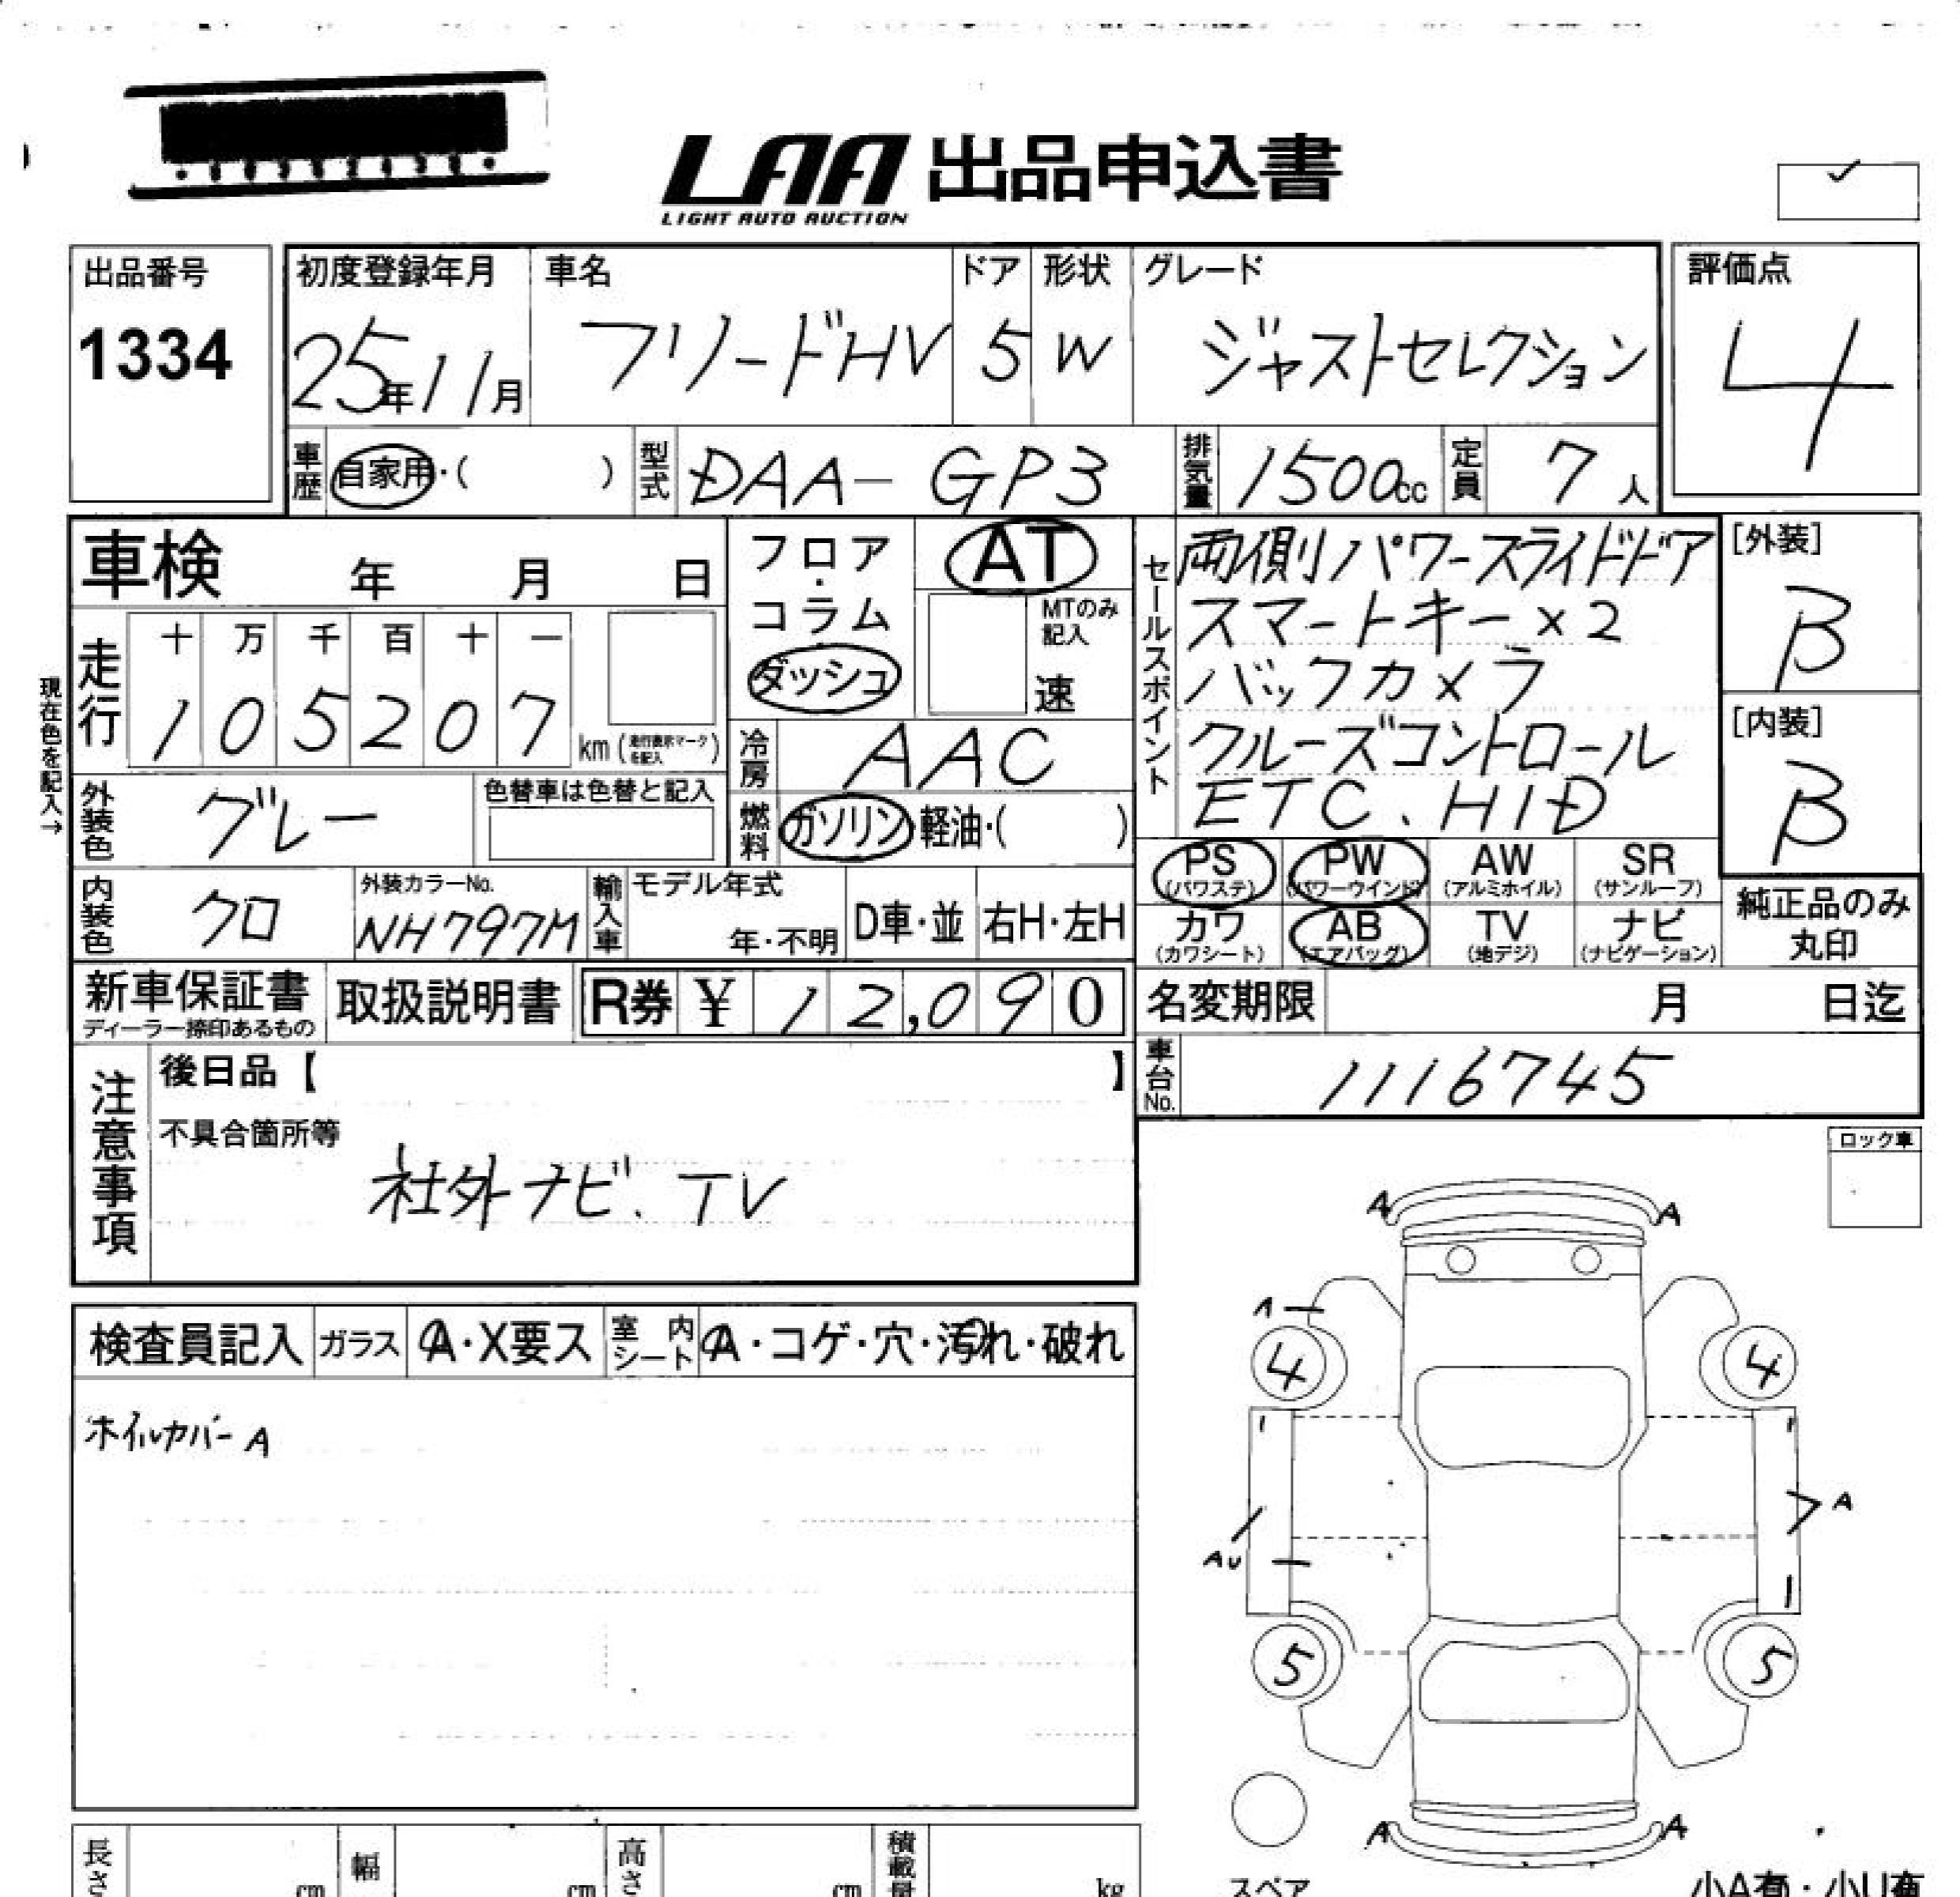 LAA 出品申込書
LIGHT AUTO AUCTION
出品番号
1334
初度登録年月
25年11月
車名
フリードHV
ドア
5
形状
W
グレード
ジャストセレクション
評価点
4
車歴 自家用・( )
型式 DAA-GP3
排気量 1500cc
定員 7人
車検 年 月 日
現在色を記入→
走行
十 万 千 百 十 一
1 0 5 2 0 7 km (走行表示マークを記入)
フロア・コラム
ダッシュ
AT
MTのみ記入
速
冷房 AAC
燃料 ガソリン・軽油・( )
外装色 グレー
色替車は色替と記入
内装色 クロ
外装カラーNo.
NH797M
輸入車
モデル年式
年・不明
D車・並
右H・左H
セールスポイント
両側パワースライドドア
スマートキー×2
バックカメラ
クルーズコントロール
ETC、HID
[外装]
B
[内装]
B
PS (パワステ)
PW (パワーウインド)
AW (アルミホイル)
SR (サンルーフ)
カワ (カワシート)
AB (エアバッグ)
TV (地デジ)
ナビ (ナビゲーション)
純正品のみ丸印
新車保証書
ディーラー捺印あるもの
取扱説明書
R券 ¥ 12,090
名変期限 月 日迄
車台No. 1116745
注意事項
後日品【 】
不具合箇所等
社外ナビ、TV
ロック車
検査員記入
ガラス
A・X要ス
室内シート
A・コゲ・穴・汚れ・破れ
ホイルカバーA
A A
A
4 4
A
AU
5 5
A A
スペア
長さ cm
幅 cm
高さ cm
積載量 kg
小A有・小U有